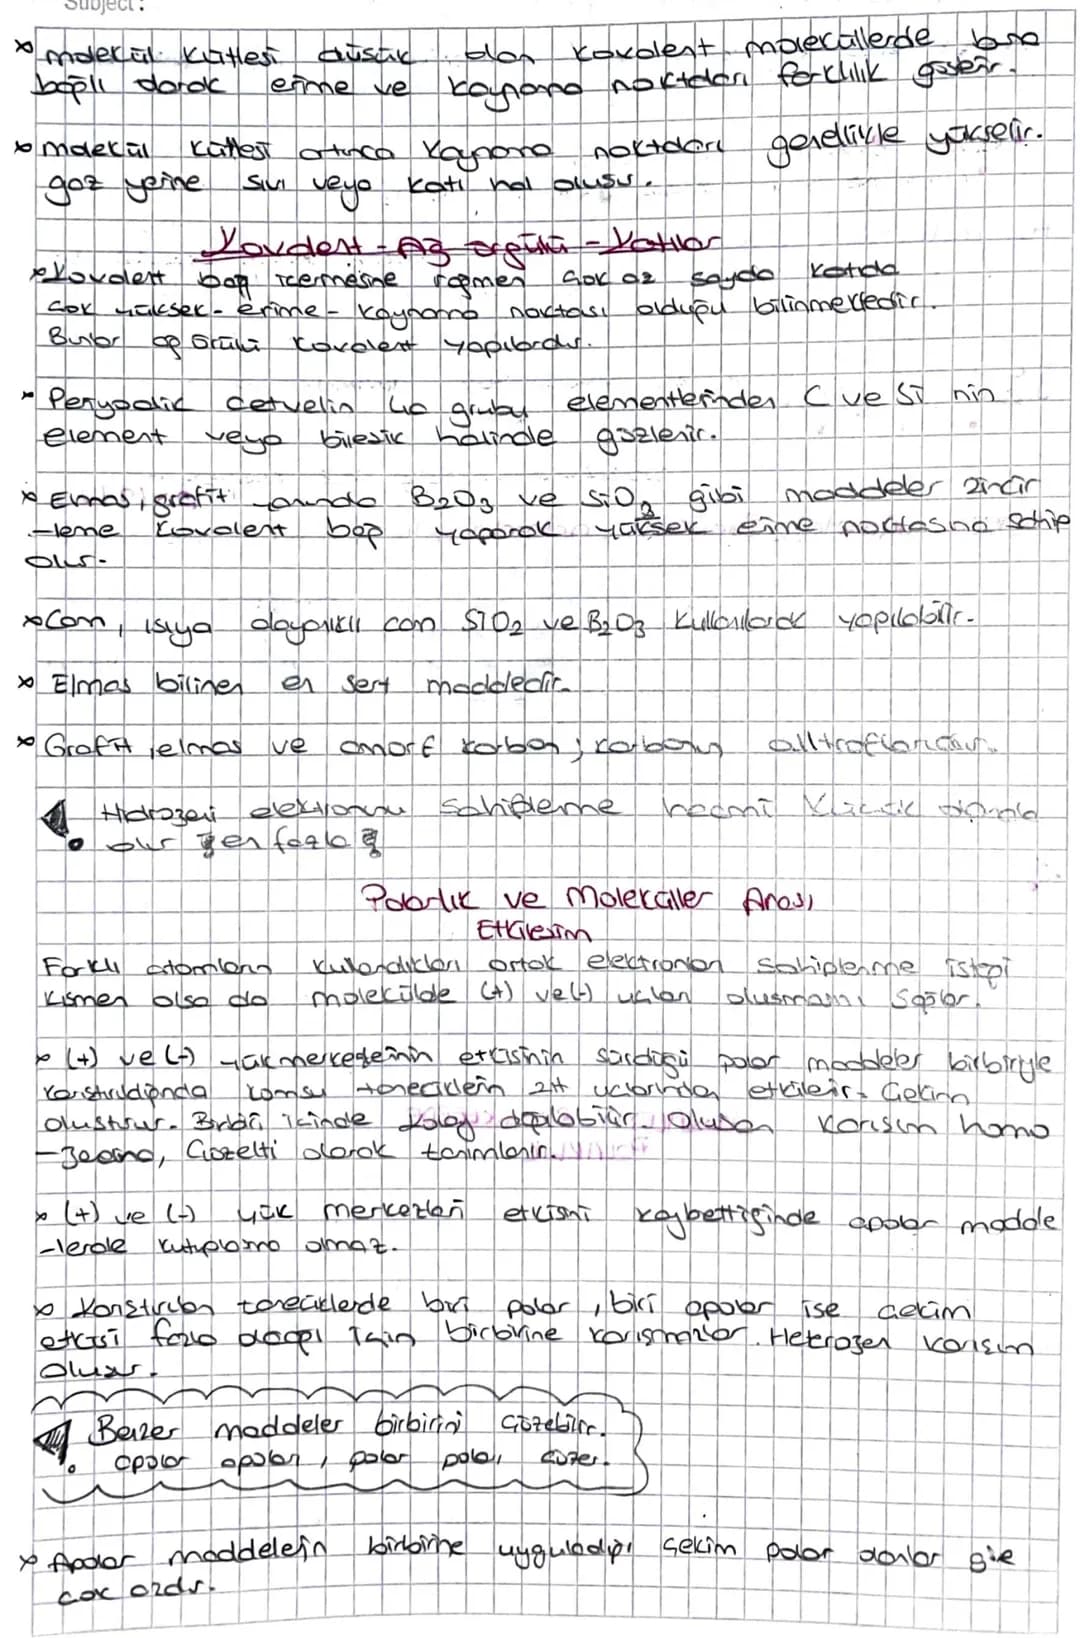 Subject:
x molekül kütlesi düşük olan kovalent moleküllerde buna
bağlı olarak erime ve kaynama noktaları farklılık gösterir.
x molekül kütlesi artınca kaynama noktaları genellikle yükselir.
gaz yerine sıvı veya katı hal oluşur.
Kovalent - Ağ örgülü - Katılar
x Kovalent bağ içermesine rağmen çok az sayıda katıda
çok yüksek - erime - kaynama noktası olduğu bilinmektedir.
Bunlar ağ örgülü kovalent yapılardır.
x Periyodik cetvelin 4a grubu elementlerinden C ve Si nin
element veya bileşik halinde gözlenir.
x Elmas, grafit B2O3 ve SiO2 gibi maddeler zincir
-leme kovalent bağ yaparak yüksek erime noktasına sahip
olur.
x Cam, ısıya dayanıklı cam SiO2 ve B2O3 kullanılarak yapılabilir.
x Elmas bilinen en sert maddedir.
x Grafit, elmas ve amorf karbon; karbonun alltroflarıdır.
Hidrojeni elektronunu sahiplenme hacmi küçük
olur en fazla
Polarlık ve Moleküller Arası
Etkileşim
Farklı atomların kullandıkları ortak elektronları sahiplenme isteği
kısmen olsa da molekülde (+) ve (-) uçları oluşmasını sağlar.
x (+) ve (-) yük merkezlerinin etkisinin sürdüğü polar maddeler birbiriyle
karıştırıldığında komşu taneciklerin zıt uçlarından etkileşir. Çekim
oluşturur. Birbiri içinde kolay dağılabilir. Oluşan karışım homo
-jendir, çözelti olarak tanımlanır.
x (+) ve (-) yük merkezleri etkisini kaybettiğinde apolar madde
-lerde kutuplama olmaz.
x Karıştırılan taneciklerde biri polar, biri apolar ise çekim
etkisi fazla değil için birbirine karışmazlar. Hetrojen karışım
oluşur.
Benzer maddeler birbirini çözebilir.
apolar apoları, polar poları çözer.
x Apolar maddelerin birbirine uyguladığı çekim polar olanlar göre
çok azdır.